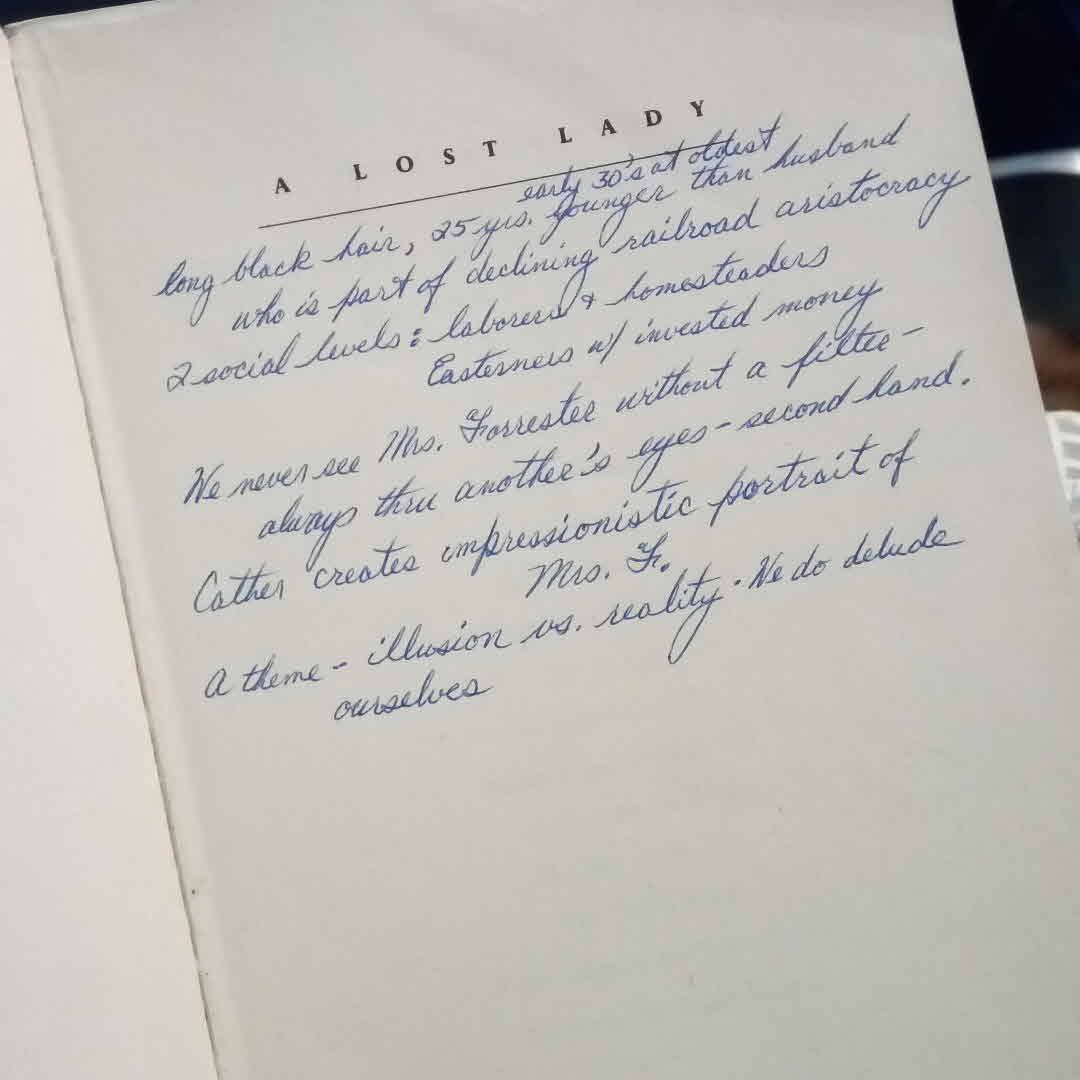 A LOST LADY
early 30's at oldest
long black hair, 25 yrs. younger than husband
who is part of declining railroad aristocracy
2 social levels: laborers & homesteaders
Easterners w/ invested money
We never see Mrs. Forrester without a filter -
always thru another's eyes - second hand.
Cather creates impressionistic portrait of
Mrs. F.
A theme - illusion vs. reality. We do delude
ourselves